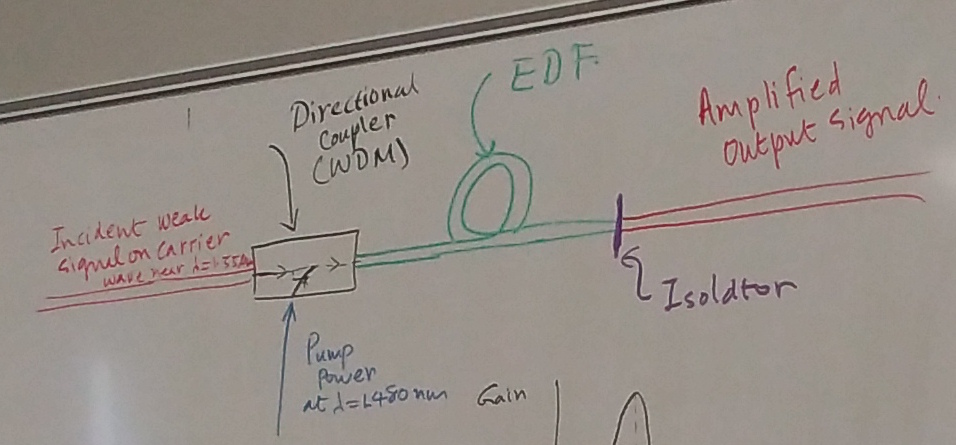 EDF.
Directional
Coupler
(WDM)
Amplified
Output Signal.
Incident weak
signal on carrier
wave near λ=1.55
Isolator
Pump
Power
at λ=1.480 nm
Gain